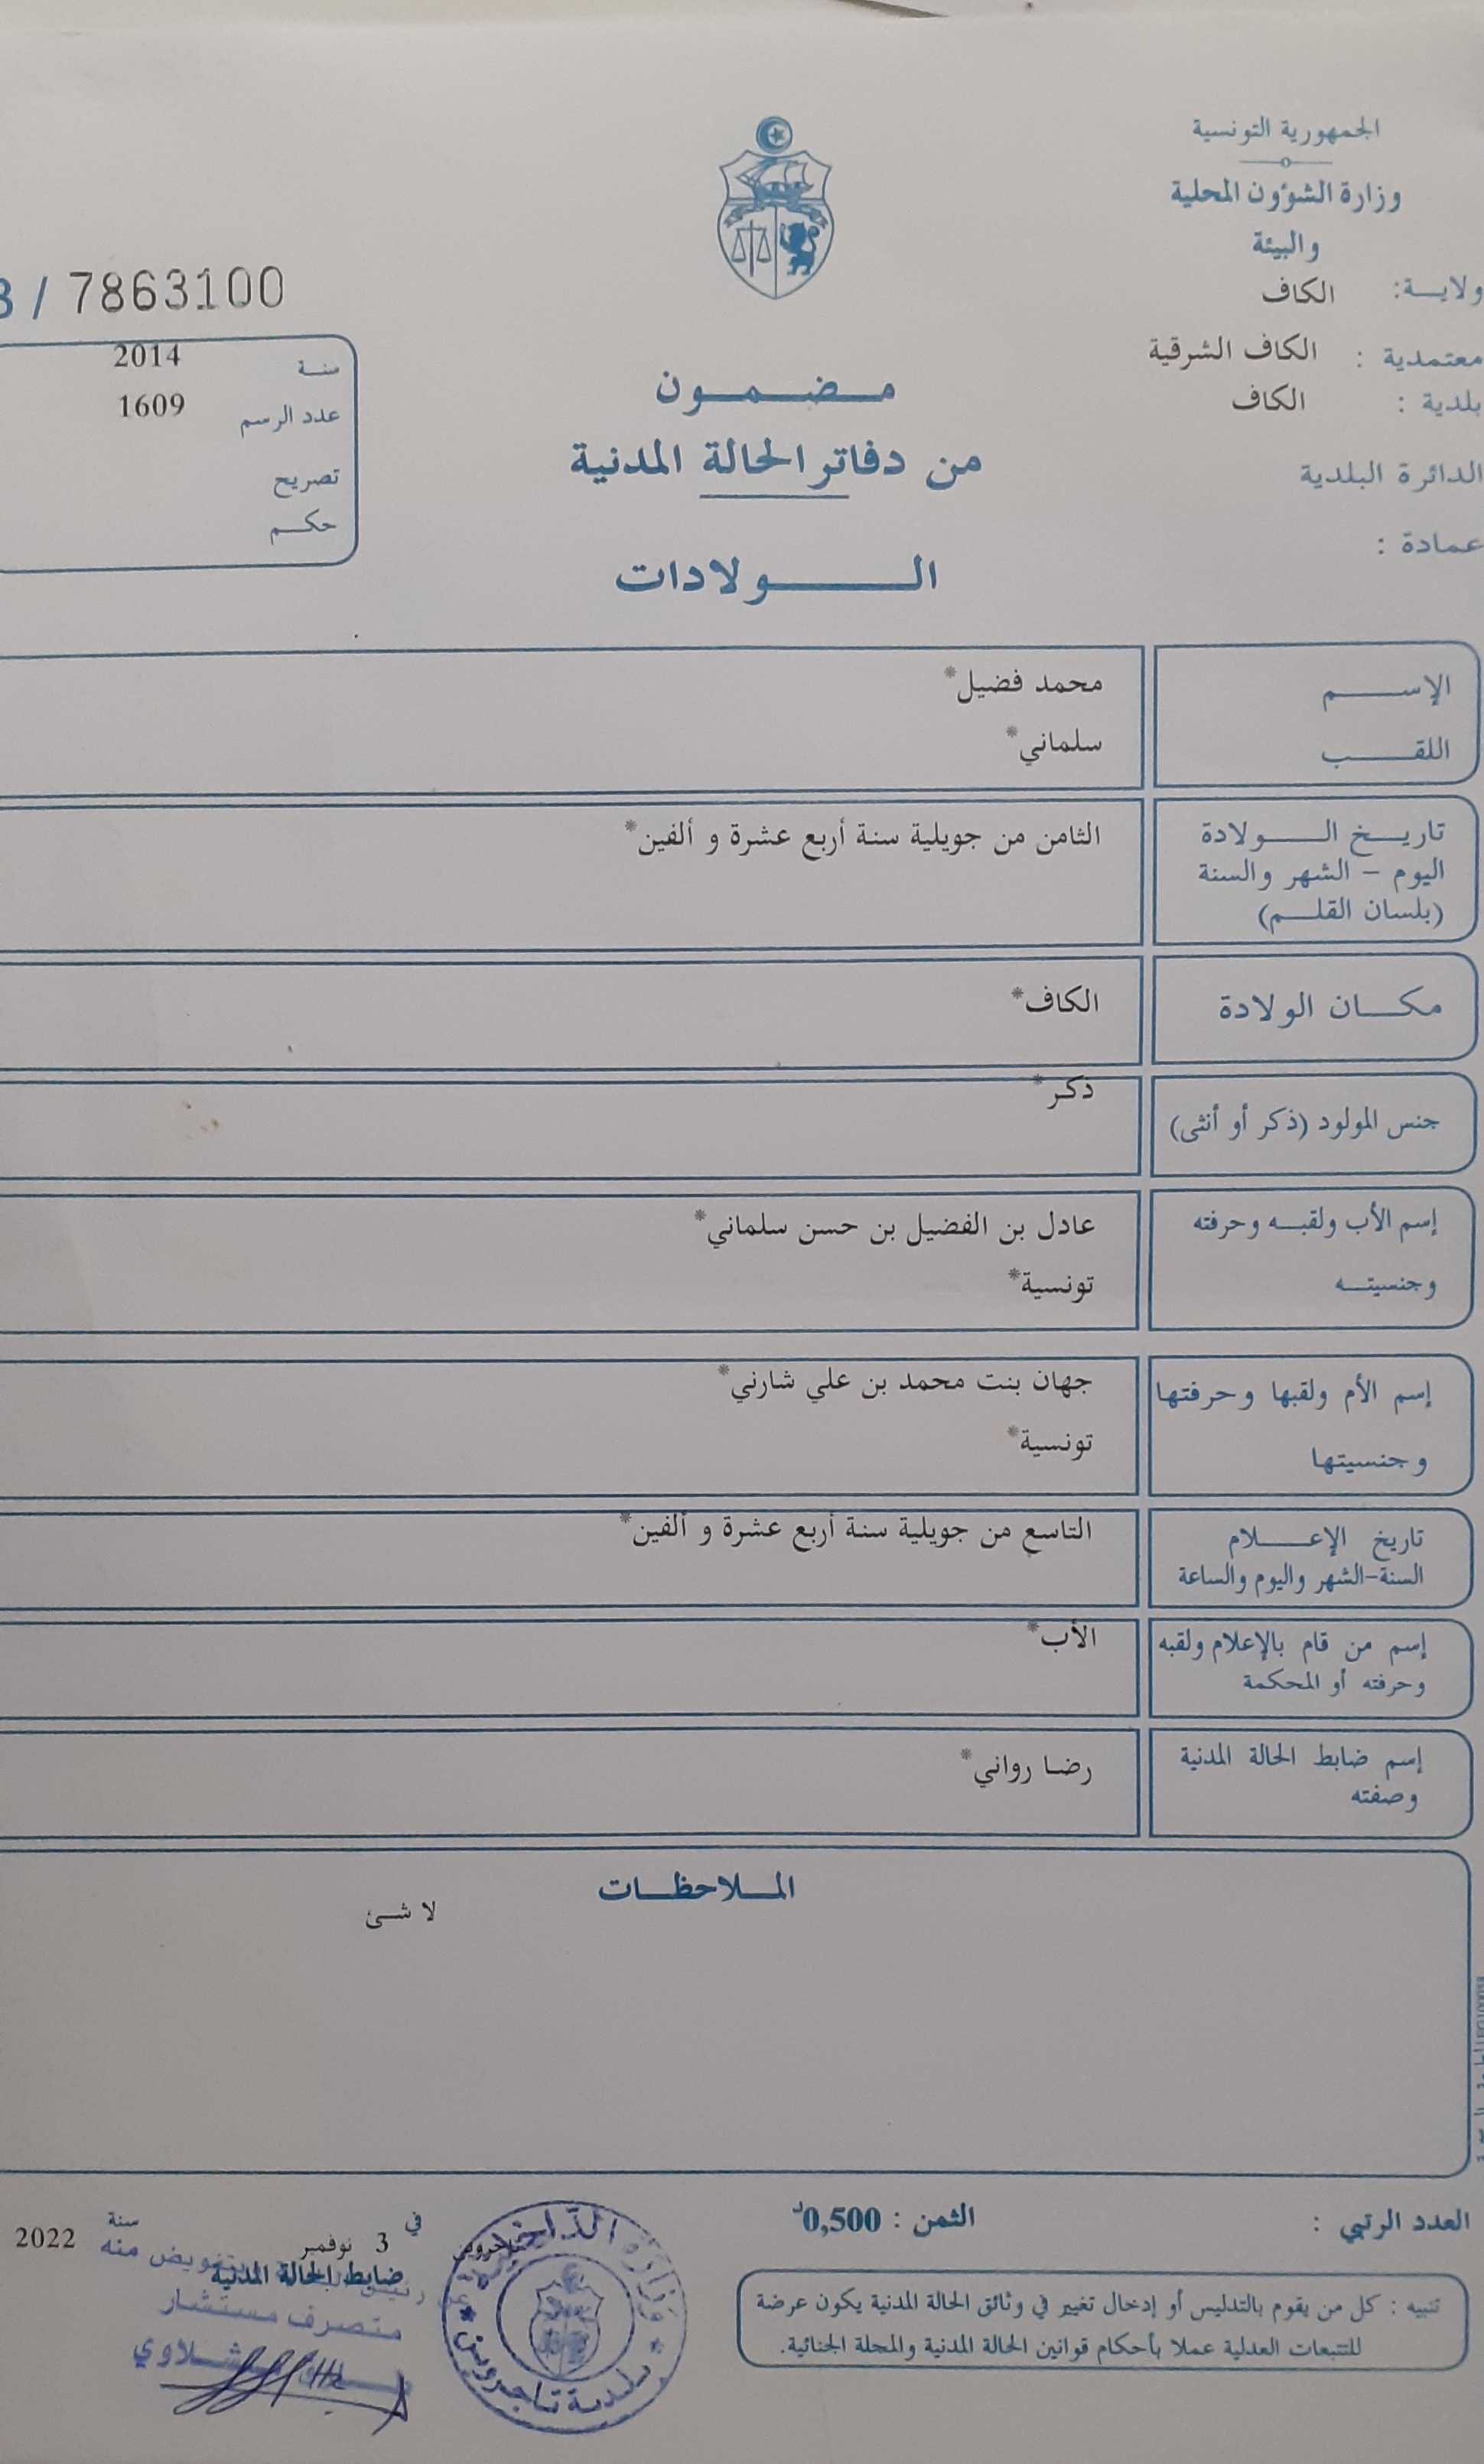 الجمهورية التونسية
وزارة الشؤون المحلية
والبيئة
ولاية: الكاف
معتمدية : الكاف الشرقية
بلدية : الكاف
الدائرة البلدية
عمادة :
/ 7863100
سنة 2014
عدد الرسم 1609
تصريح
حكم
مضمون
من دفاتر الحالة المدنية
الولادات
الإسم محمد فضيل*
اللقب سلماني*
تاريخ الولادة
اليوم - الشهر والسنة
(بلسان القلم)
الثامن من جويلية سنة أربع عشرة و ألفين*
مكان الولادة الكاف*
جنس المولود (ذكر أو أنثى) ذكر*
إسم الأب ولقبه وحرفته عادل بن الفضيل بن حسن سلماني*
وجنسيته تونسية*
إسم الأم ولقبها وحرفتها جهان بنت محمد بن علي شارني*
وجنسيتها تونسية*
تاريخ الإعلام التاسع من جويلية سنة أربع عشرة و ألفين*
السنة-الشهر واليوم والساعة
إسم من قام بالإعلام ولقبه الأب*
وحرفته أو المحكمة
إسم ضابط الحالة المدنية رضا رواني*
وصفته
الملاحظات
لا شئ
العدد الرتبي :
الثمن : 0,500د
تنبيه : كل من يقوم بالتدليس أو إدخال تغيير في وثائق الحالة المدنية يكون عرضة
للتتبعات العدلية عملا بأحكام قوانين الحالة المدنية والمجلة الجنائية.
تاجروين في 3 نوفمبر سنة 2022
ضابط الحالة المدنية
متصرف مستشار
وزارة الداخلية
بلدية تاجروين